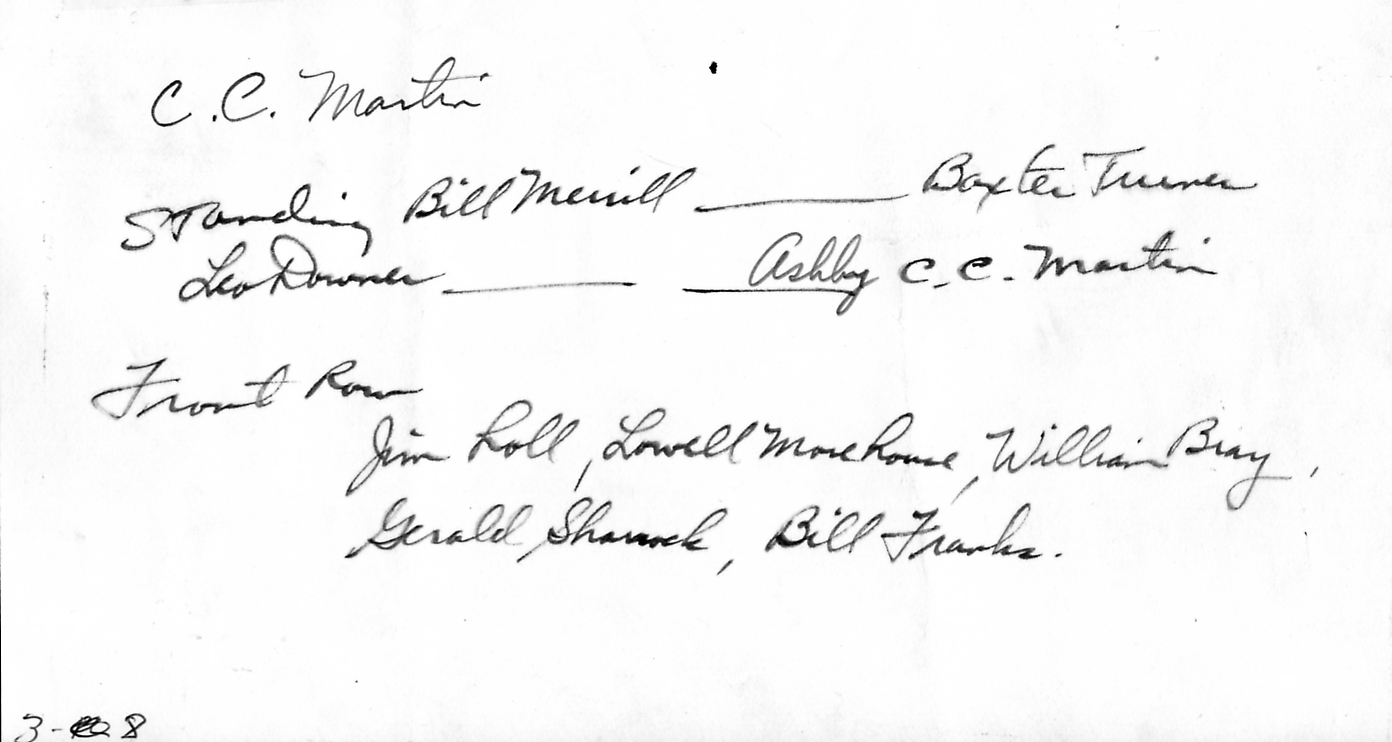 C.C. Martin
Standing Bill Merrill ______ Baxter Turner
Leo Downer ______ ______ Ashby C.C. Martin
Front Row
Jim Loll, Lowell Morehouse, William Bray,
Gerald Sharrock, Bill Franks.
3- 8